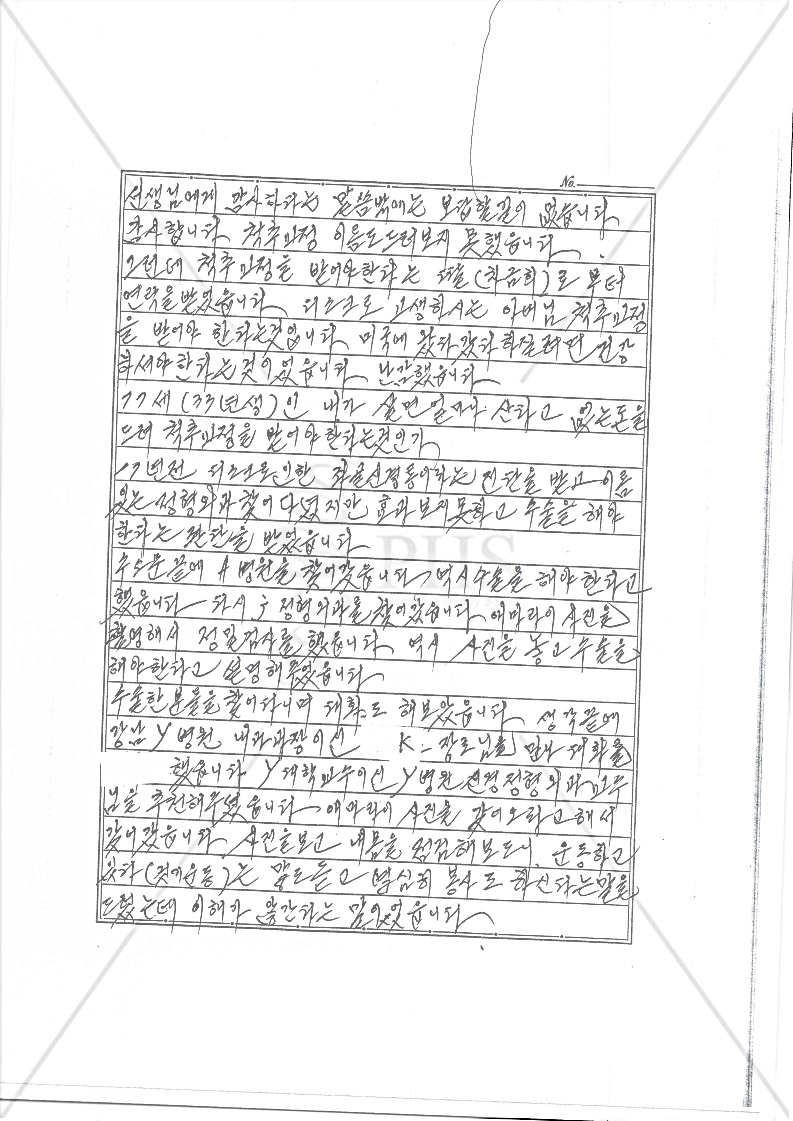 No.
선생님에게 감사하다는 말씀밖에는 보답할길이 없습니다
감사합니다. 척추교정 이름도 드러보지 못했습니다.
그런데 척추교정을 받어야한다는 딸(최금희)로 부터
연락을 받었습니다. 디스크로 고생하시는 아버님 척추교정
을 받어야 한다는것입니다. 미국에 왔다갔다 하실려면 건강
하셔야한다는 것이었습니다. 난감했습니다.
77세 (33년생)인 내가 살면 얼마나 산다고 없는돈을
드려 척추교정을 받어야한다는것인가
17년전 디스크로 인한 좌골신경통이라는 진단을 받고 이름
있는 성형외과 찾어 다녔지만 효과보지못하고 수술을 해야
한다는 판단을 받었습니다.
수소문끝에 A 병원을 찾어갔습니다. 역시 수술을 해야 한다고
했습니다. 다시 정형외과를 찾어갔습니다. 애마라이 사진을
촬영해서 정밀검사를 했습니다. 역시 사진을 놓고 수술을
해야한다고 설명해주었습니다.
수술한 분들을 찾어다니며 대화도 해보았습니다. 생각끝에
강남 Y 병원 내과과장이신 K-장로님을 만나 대화를
했습니다. Y 대학교수이신 Y병원 신경정형외과교수
님을 추천해주었습니다. 애마라이 사진을 갖어오라고 해서
갖어갔습니다. 사진을보고 내몸을 점검해보드니, 운동하고
있다(걷기운동)는 말도듣고 열심히 봉사도 하신다는말을
드렸는데 이해가 않간다는 말이었습니다.